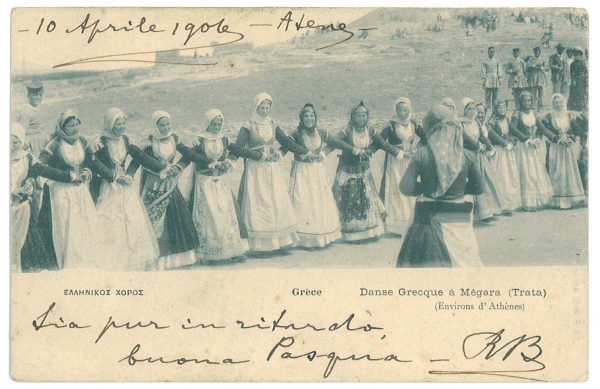 - 10 Aprile 1906 - Atene -
ΕΛΛΗΝΙΚΟΣ ΧΟΡΟΣ
Grèce
Danse Grecque á Mégara (Trata)
(Environs d'Athènes)
Sia pur in ritardo,
buona Pasqua - RB